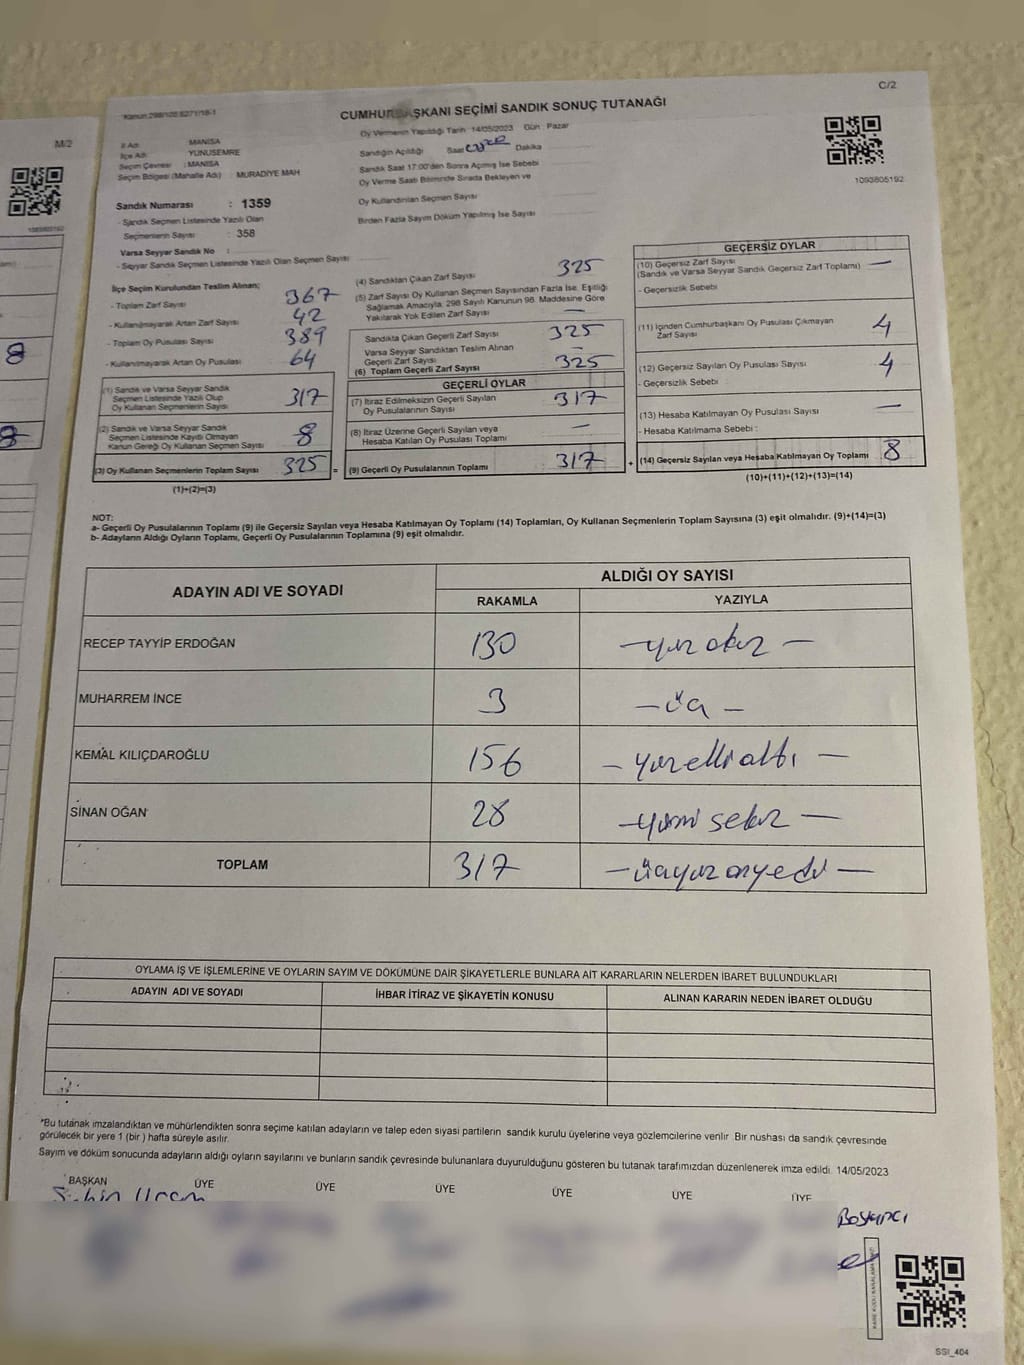 C/2
Kanun:298/105 6271/16-1
CUMHURBAŞKANI SEÇİMİ SANDIK SONUÇ TUTANAĞI
M/2
İl Adı : MANİSA
İlçe Adı : YUNUSEMRE
Seçim Çevresi : MANİSA
Seçim Bölgesi (Mahalle Adı) : MURADİYE MAH
Oy Vermenin Yapıldığı Tarih : 14/05/2023 Gün : Pazar
Sandığın Açıldığı Saat Dakika
Sandık Saat 17:00'den Sonra Açılmış İse Sebebi
Oy Verme Saati Bitiminde Sırada Bekleyen ve
Oy Kullandırılan Seçmen Sayısı
Birden Fazla Sayım Döküm Yapılmış İse Sayısı
1093805192
Sandık Numarası : 1359
- Sandık Seçmen Listesinde Yazılı Olan
Seçmenlerin Sayısı : 358
Varsa Seyyar Sandık No :
- Seyyar Sandık Seçmen Listesinde Yazılı Olan Seçmen Sayısı
İlçe Seçim Kurulundan Teslim Alınan;
- Toplam Zarf Sayısı 367
- Kullanılmayarak Artan Zarf Sayısı 42
- Toplam Oy Pusulası Sayısı 389
- Kullanılmayarak Artan Oy Pusulası 64
(1) Sandık ve Varsa Seyyar Sandık
Seçmen Listesinde Yazılı Olup
Oy Kullanan Seçmenlerin Sayısı 317
(2) Sandık ve Varsa Seyyar Sandık
Seçmen Listesinde Kayıtlı Olmayan
Kanun Gereği Oy Kullanan Seçmen Sayısı 8
(3) Oy Kullanan Seçmenlerin Toplam Sayısı 325 =
(1)+(2)=(3)
(4) Sandıktan Çıkan Zarf Sayısı 325
(5) Zarf Sayısı Oy Kullanan Seçmen Sayısından Fazla İse, Eşitliği
Sağlamak Amacıyla, 298 Sayılı Kanunun 98. Maddesine Göre
Yakılarak Yok Edilen Zarf Sayısı —
Sandıkta Çıkan Geçerli Zarf Sayısı 325
Varsa Seyyar Sandıktan Teslim Alınan
Geçerli Zarf Sayısı —
(6) Toplam Geçerli Zarf Sayısı 325
GEÇERLİ OYLAR
(7) İtiraz Edilmeksizin Geçerli Sayılan
Oy Pusulalarının Sayısı 317
(8) İtiraz Üzerine Geçerli Sayılan veya
Hesaba Katılan Oy Pusulası Toplamı —
(9) Geçerli Oy Pusulalarının Toplamı 317 +
GEÇERSİZ OYLAR
(10) Geçersiz Zarf Sayısı —
(Sandık ve Varsa Seyyar Sandık Geçersiz Zarf Toplamı)
- Geçersizlik Sebebi
(11) İçinden Cumhurbaşkanı Oy Pusulası Çıkmayan
Zarf Sayısı 4
(12) Geçersiz Sayılan Oy Pusulası Sayısı 4
- Geçersizlik Sebebi
(13) Hesaba Katılmayan Oy Pusulası Sayısı —
- Hesaba Katılmama Sebebi :
(14) Geçersiz Sayılan veya Hesaba Katılmayan Oy Toplamı 8
(10)+(11)+(12)+(13)=(14)
8
8
NOT:
a- Geçerli Oy Pusulalarının Toplamı (9) ile Geçersiz Sayılan veya Hesaba Katılmayan Oy Toplamı (14) Toplamları, Oy Kullanan Seçmenlerin Toplam Sayısına (3) eşit olmalıdır. (9)+(14)=(3)
b- Adayların Aldığı Oyların Toplamı, Geçerli Oy Pusulalarının Toplamına (9) eşit olmalıdır.
ADAYIN ADI VE SOYADI ALDIĞI OY SAYISI
RAKAMLA YAZIYLA
RECEP TAYYİP ERDOĞAN 130 — yüz otuz —
MUHARREM İNCE 3 — üç —
KEMAL KILIÇDAROĞLU 156 — yüzelli altı —
SİNAN OĞAN 28 — yirmi sekiz —
TOPLAM 317 — üçyüz onyedi —
OYLAMA İŞ VE İŞLEMLERİNE VE OYLARIN SAYIM VE DÖKÜMÜNE DAİR ŞİKAYETLERLE BUNLARA AİT KARARLARIN NELERDEN İBARET BULUNDUKLARI
ADAYIN ADI VE SOYADI İHBAR İTİRAZ VE ŞİKAYETİN KONUSU ALINAN KARARIN NEDEN İBARET OLDUĞU
*Bu tutanak imzalandıktan ve mühürlendikten sonra seçime katılan adayların ve talep eden siyasi partilerin sandık kurulu üyelerine veya gözlemcilerine verilir. Bir nüshası da sandık çevresinde
görülecek bir yere 1 (bir ) hafta süreyle asılır.
Sayım ve döküm sonucunda adayların aldığı oyların sayılarını ve bunların sandık çevresinde bulunanlara duyurulduğunu gösteren bu tutanak tarafımızdan düzenlenerek imza edildi. 14/05/2023
BAŞKAN ÜYE ÜYE ÜYE ÜYE ÜYE ÜYE
SSI_404